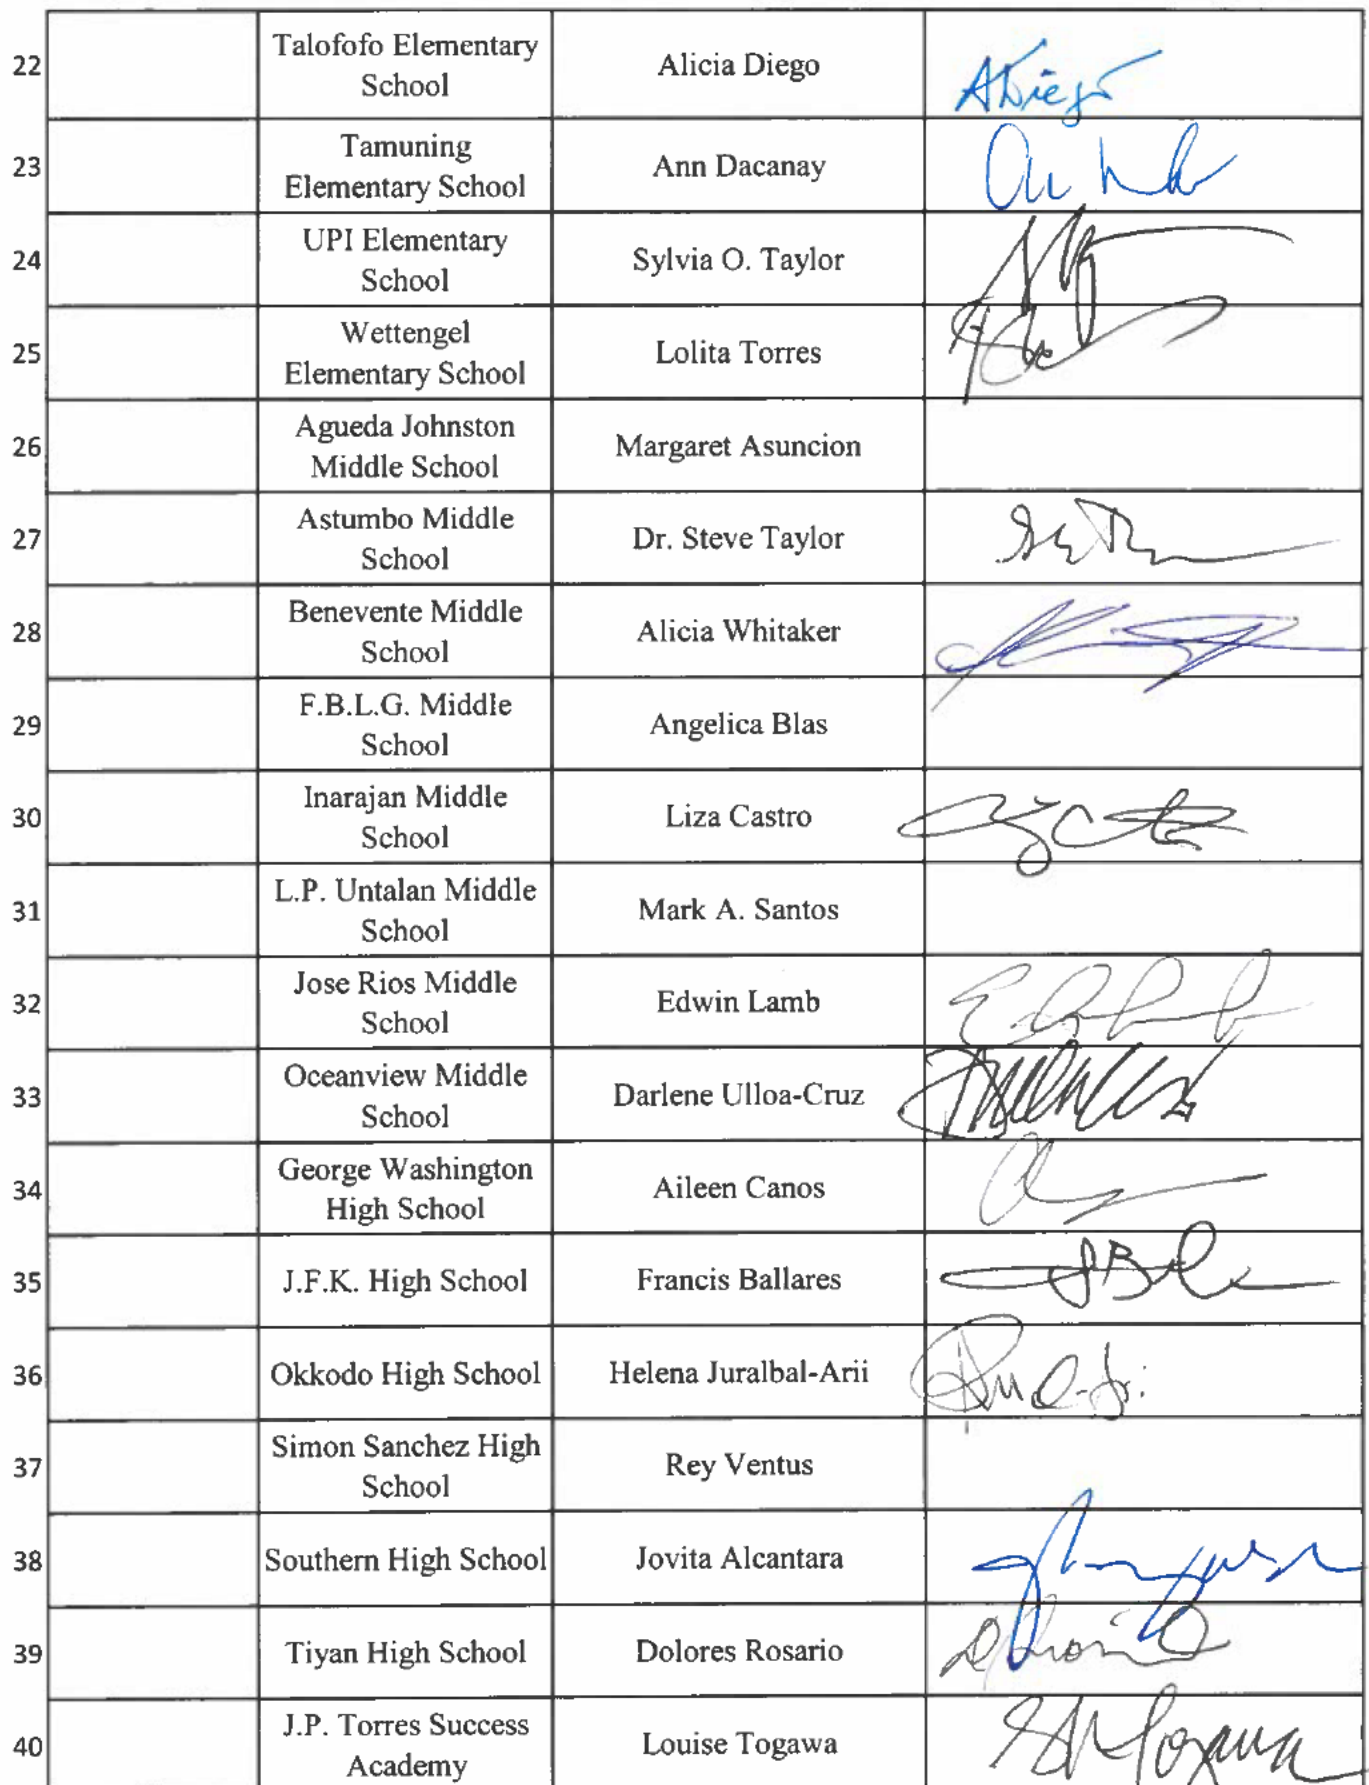 22
Talofofo Elementary
School
Alicia Diego
ADiego
23
Tamuning
Elementary School
Ann Dacanay
24
UPI Elementary
School
Sylvia O. Taylor
25
Wettengel
Elementary School
Lolita Torres
26
Agueda Johnston
Middle School
Margaret Asuncion
27
Astumbo Middle
School
Dr. Steve Taylor
28
Benevente Middle
School
Alicia Whitaker
29
F.B.L.G. Middle
School
Angelica Blas
30
Inarajan Middle
School
Liza Castro
31
L.P. Untalan Middle
School
Mark A. Santos
32
Jose Rios Middle
School
Edwin Lamb
33
Oceanview Middle
School
Darlene Ulloa-Cruz
34
George Washington
High School
Aileen Canos
35
J.F.K. High School
Francis Ballares
36
Okkodo High School
Helena Juralbal-Arii
37
Simon Sanchez High
School
Rey Ventus
38
Southern High School
Jovita Alcantara
39
Tiyan High School
Dolores Rosario
40
J.P. Torres Success
Academy
Louise Togawa